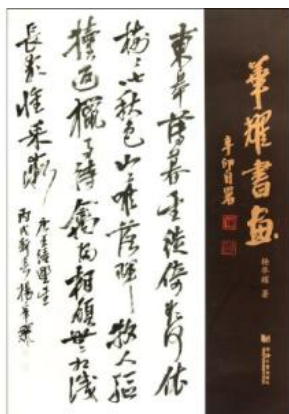 華耀書画
辛卯自署
杨华耀 著
東皋薄暮望徙倚欲何依
樹々皆秋色山々唯落暉牧人驅
犢返獵馬帶禽歸相顧無相識
長歌懷采薇
唐王績野望
丙戌新春楊華耀